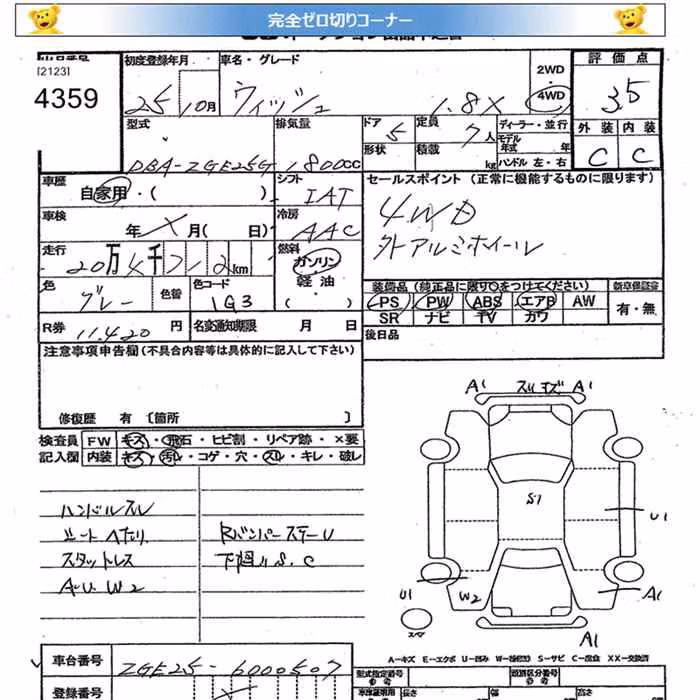 完全ゼロ切りコーナー
[2123]
4359
初度登録年月 25 10月
車名・グレード ウィッシュ 1.8X
2WD
4WD
評価点
3.5
外装 内装
C C
型式 DBA-ZGE25G
排気量 1800cc
ドア 5
形状
定員 7人
積載 kg
ディーラー・並行
モデル年式 年
ハンドル 左・右
車歴 自家用・( )
シフト IAT
セールスポイント (正常に機能するものに限ります)
4WD
外アルミホイール
車検 年 月( 日)
冷房 AAC
走行 20万 千 km
燃料 ガソリン
軽油
( )
色 グレー
色替
色コード 1G3
装備品 (純正品に限り○をつけてください)
新車保証書
PS PW ABS エアB AW
SR ナビ TV カワ
有・無
R券 11,420円
名変通知期限 月 日
後日品
注意事項申告欄 (不具合内容等は具体的に記入して下さい)
修復歴 有 [箇所 ]
検査員 FW キズ・飛石・ヒビ割・リペア跡・×要
記入欄 内装 キズ・汚レ・コゲ・穴・スレ・キレ・破レ
ハンドルスレ
シートヘタリ
スタットレス
A・U W2
RバンパーステーU
下廻りS.C
A1 スリキズ A1
S1
U1
U1
スペア
W2
A1
A1
A-キズ E-エクボ U-凹み W-補修跡 S-サビ C-腐食 XX-交換済
車台番号 ZGE25-6000507
登録番号
型式指定番号
類別区分番号
長さ 幅 高さ